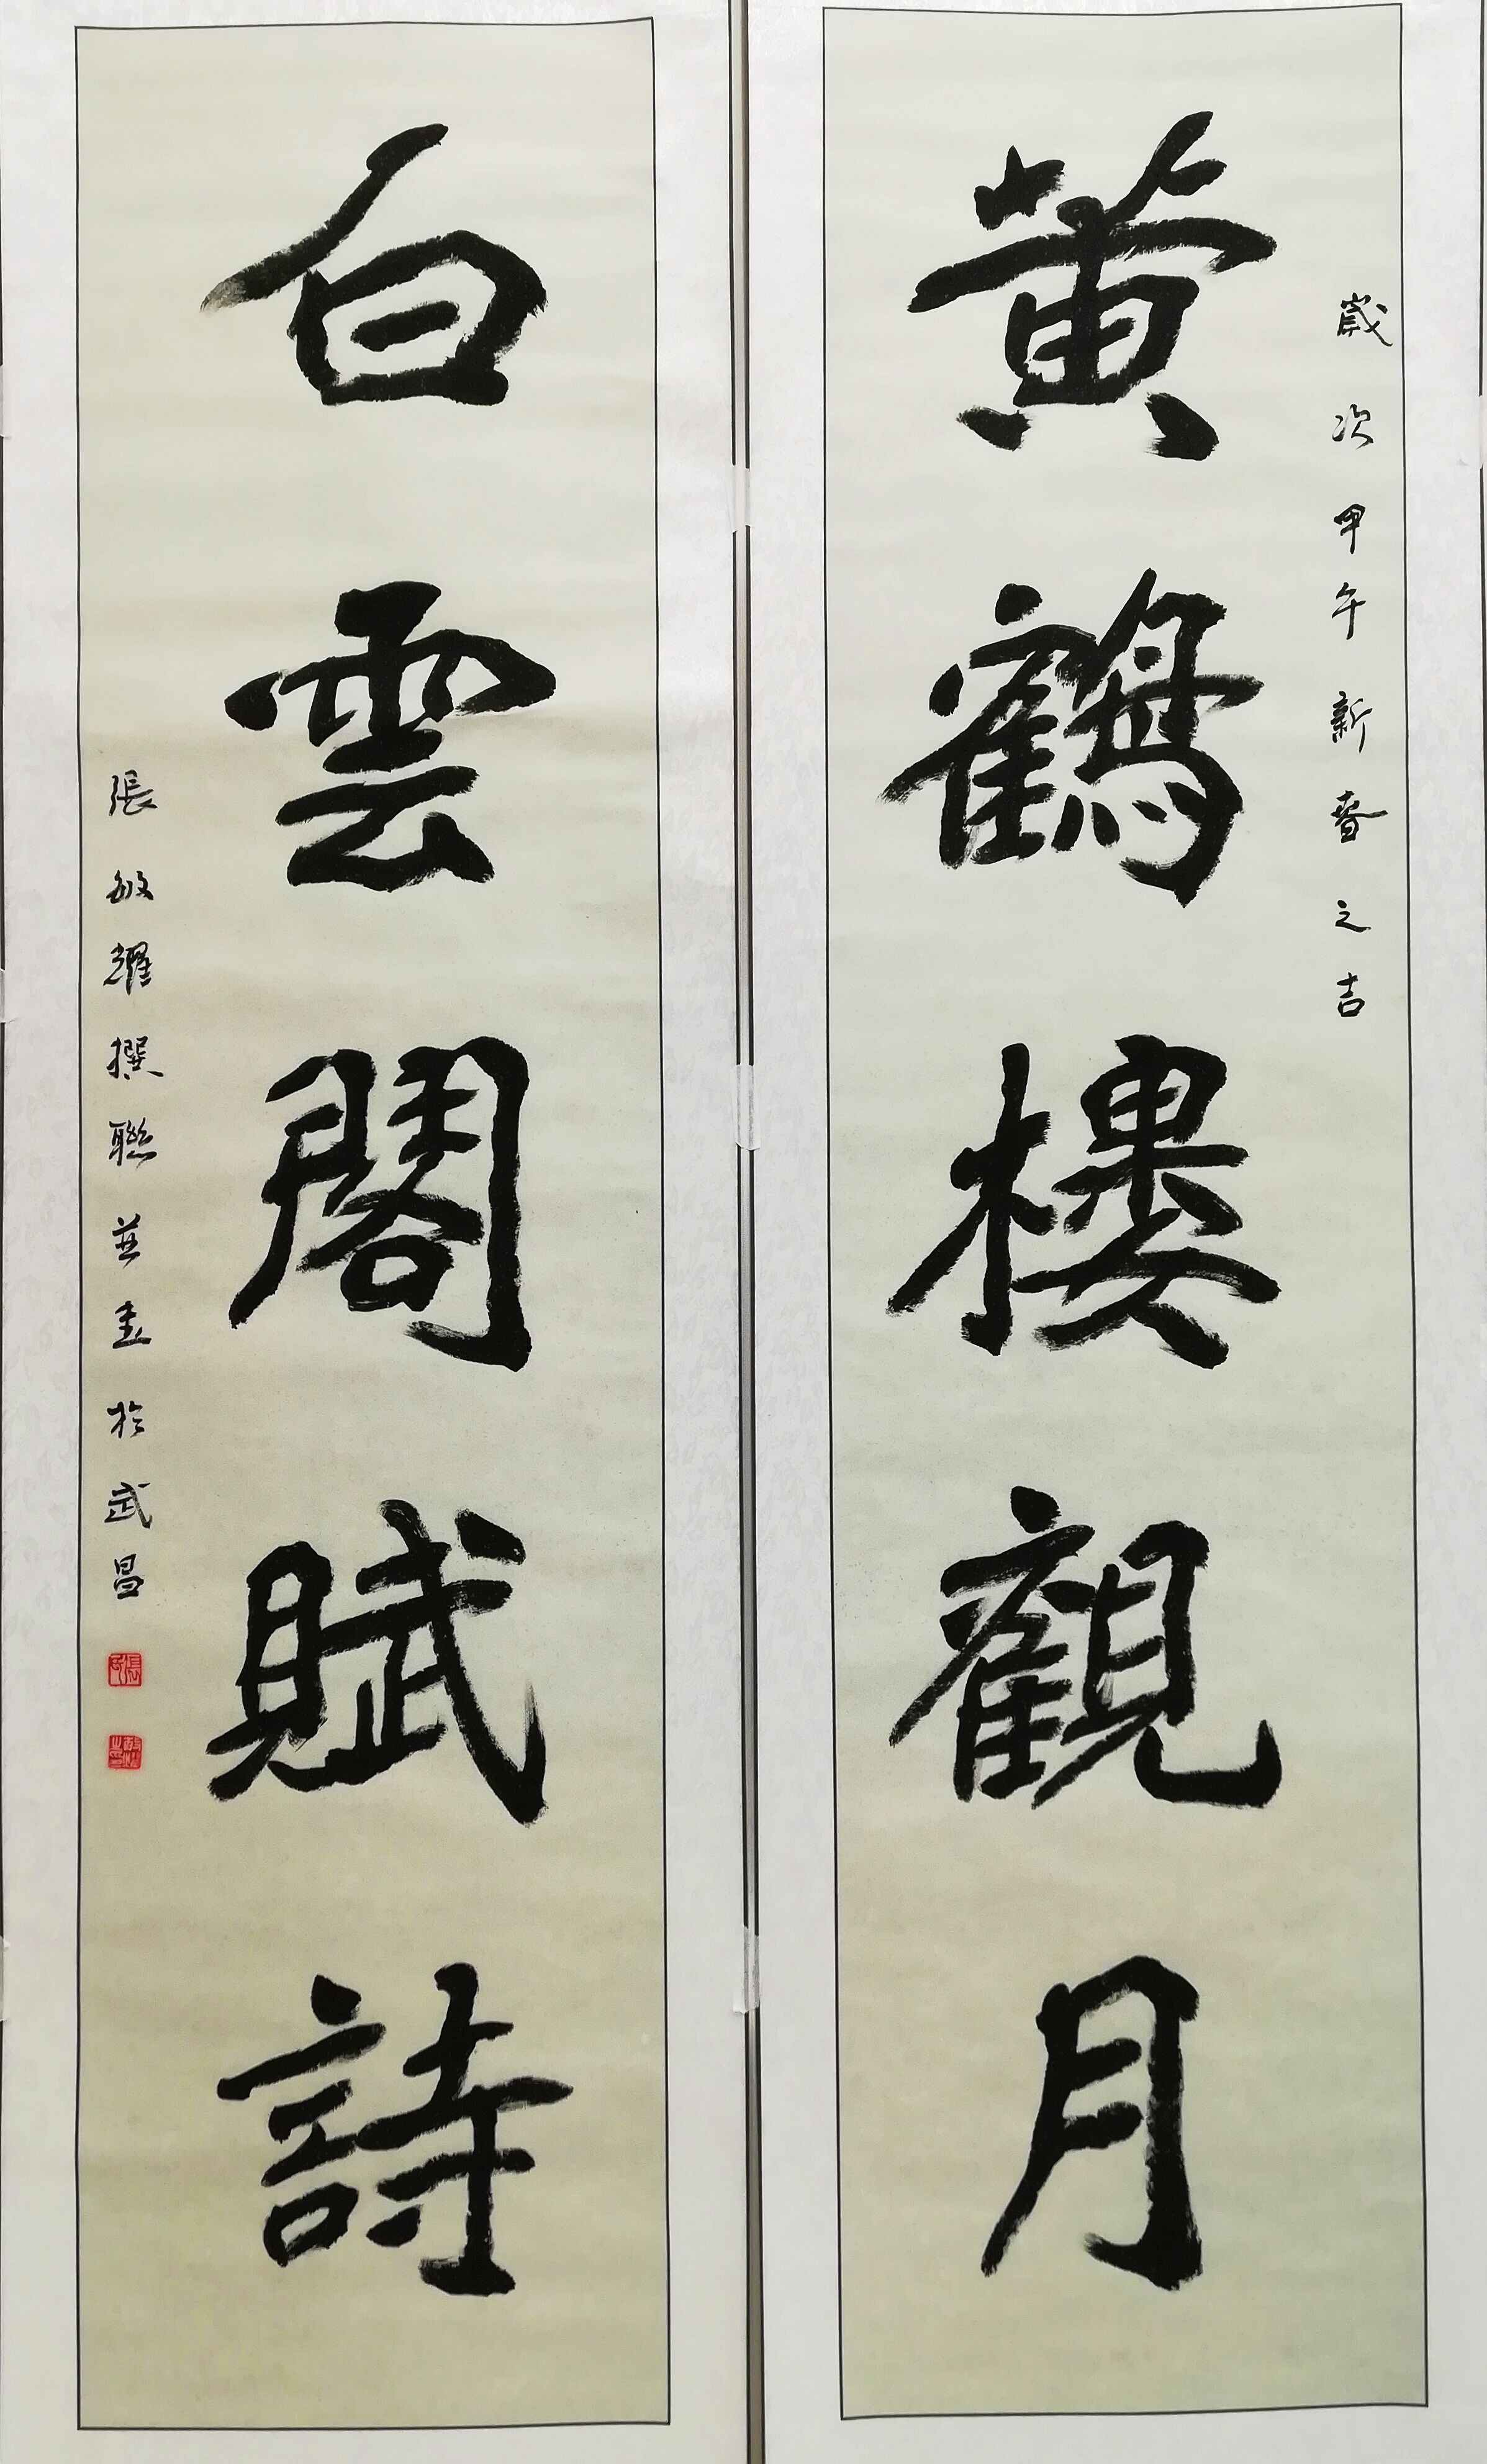 歲次甲午新春之吉
黄鶴樓觀月
白雲閣賦詩
張敏耀撰聯並書於武昌